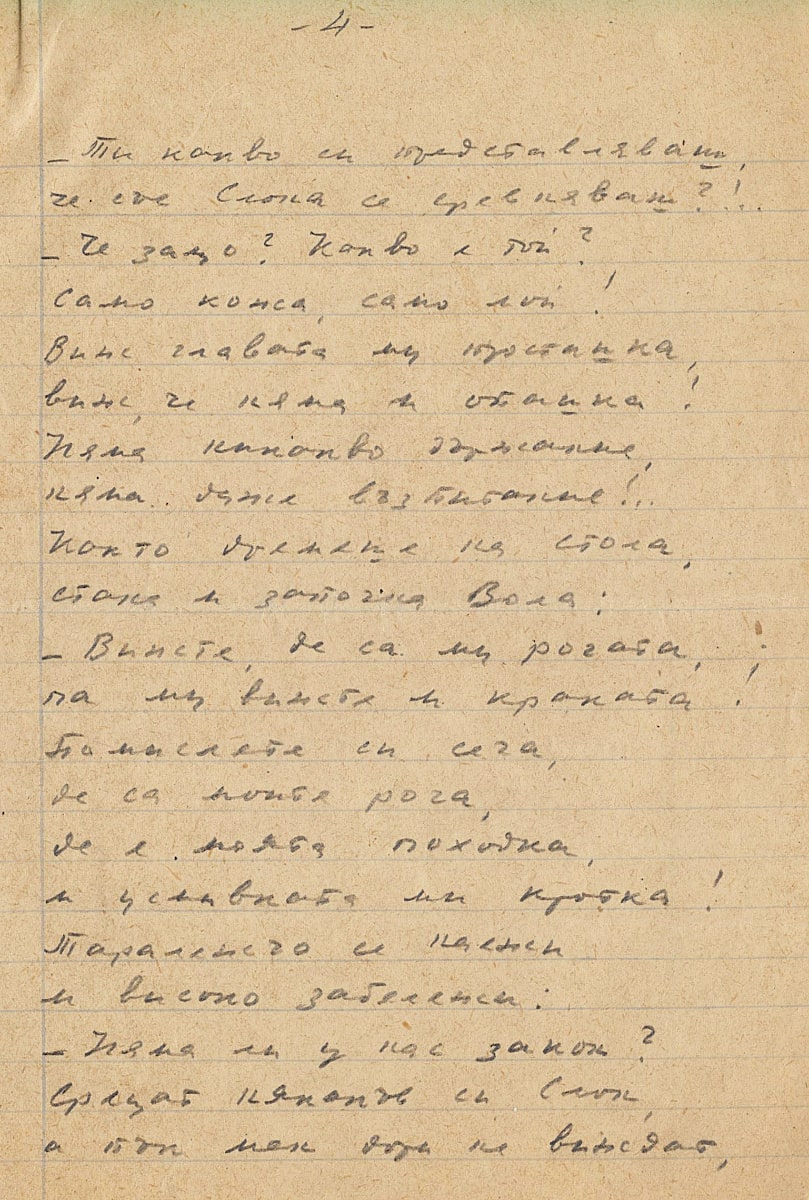 - 4 -
– Ти какво си представляваш,
че със Слона се сревняваш?!..
– Че защо? Какво е той?
Само кожа, само лой!
Виж главата му просташка,
виж, че няма и опашка!
Няма никакво държание,
няма даже възпитание!..
Както дремеше на стола,
стана и започна Вола:
– Вижте, де са му рогата,
па му вижте и краката!
Помислете си сега,
де са моите рога,
де е моята походка,
и усмивката ми кротка!
Таралежчо се наежи
и високо забележи:
– Няма ли у нас закон?
Срещат някакъв си Слон,
а пък мен дори не виждат,